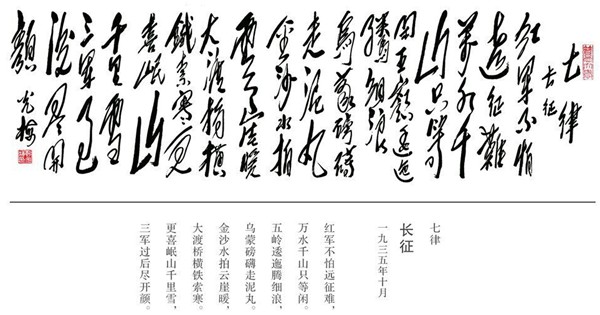 七律
长征
红軍不怕
遠征難
萬水千
山只等
閑五嶺逶迤
騰細浪
烏蒙磅礴
走泥丸
金沙水拍
雲崖暖
大渡橋横
鐵索寒更
喜岷
山
千里雪
三軍過
後尽開
顏
七律
长征
一九三五年十月
红军不怕远征难，
万水千山只等闲。
五岭逶迤腾细浪，
乌蒙磅礴走泥丸。
金沙水拍云崖暖，
大渡桥横铁索寒。
更喜岷山千里雪，
三军过后尽开颜。